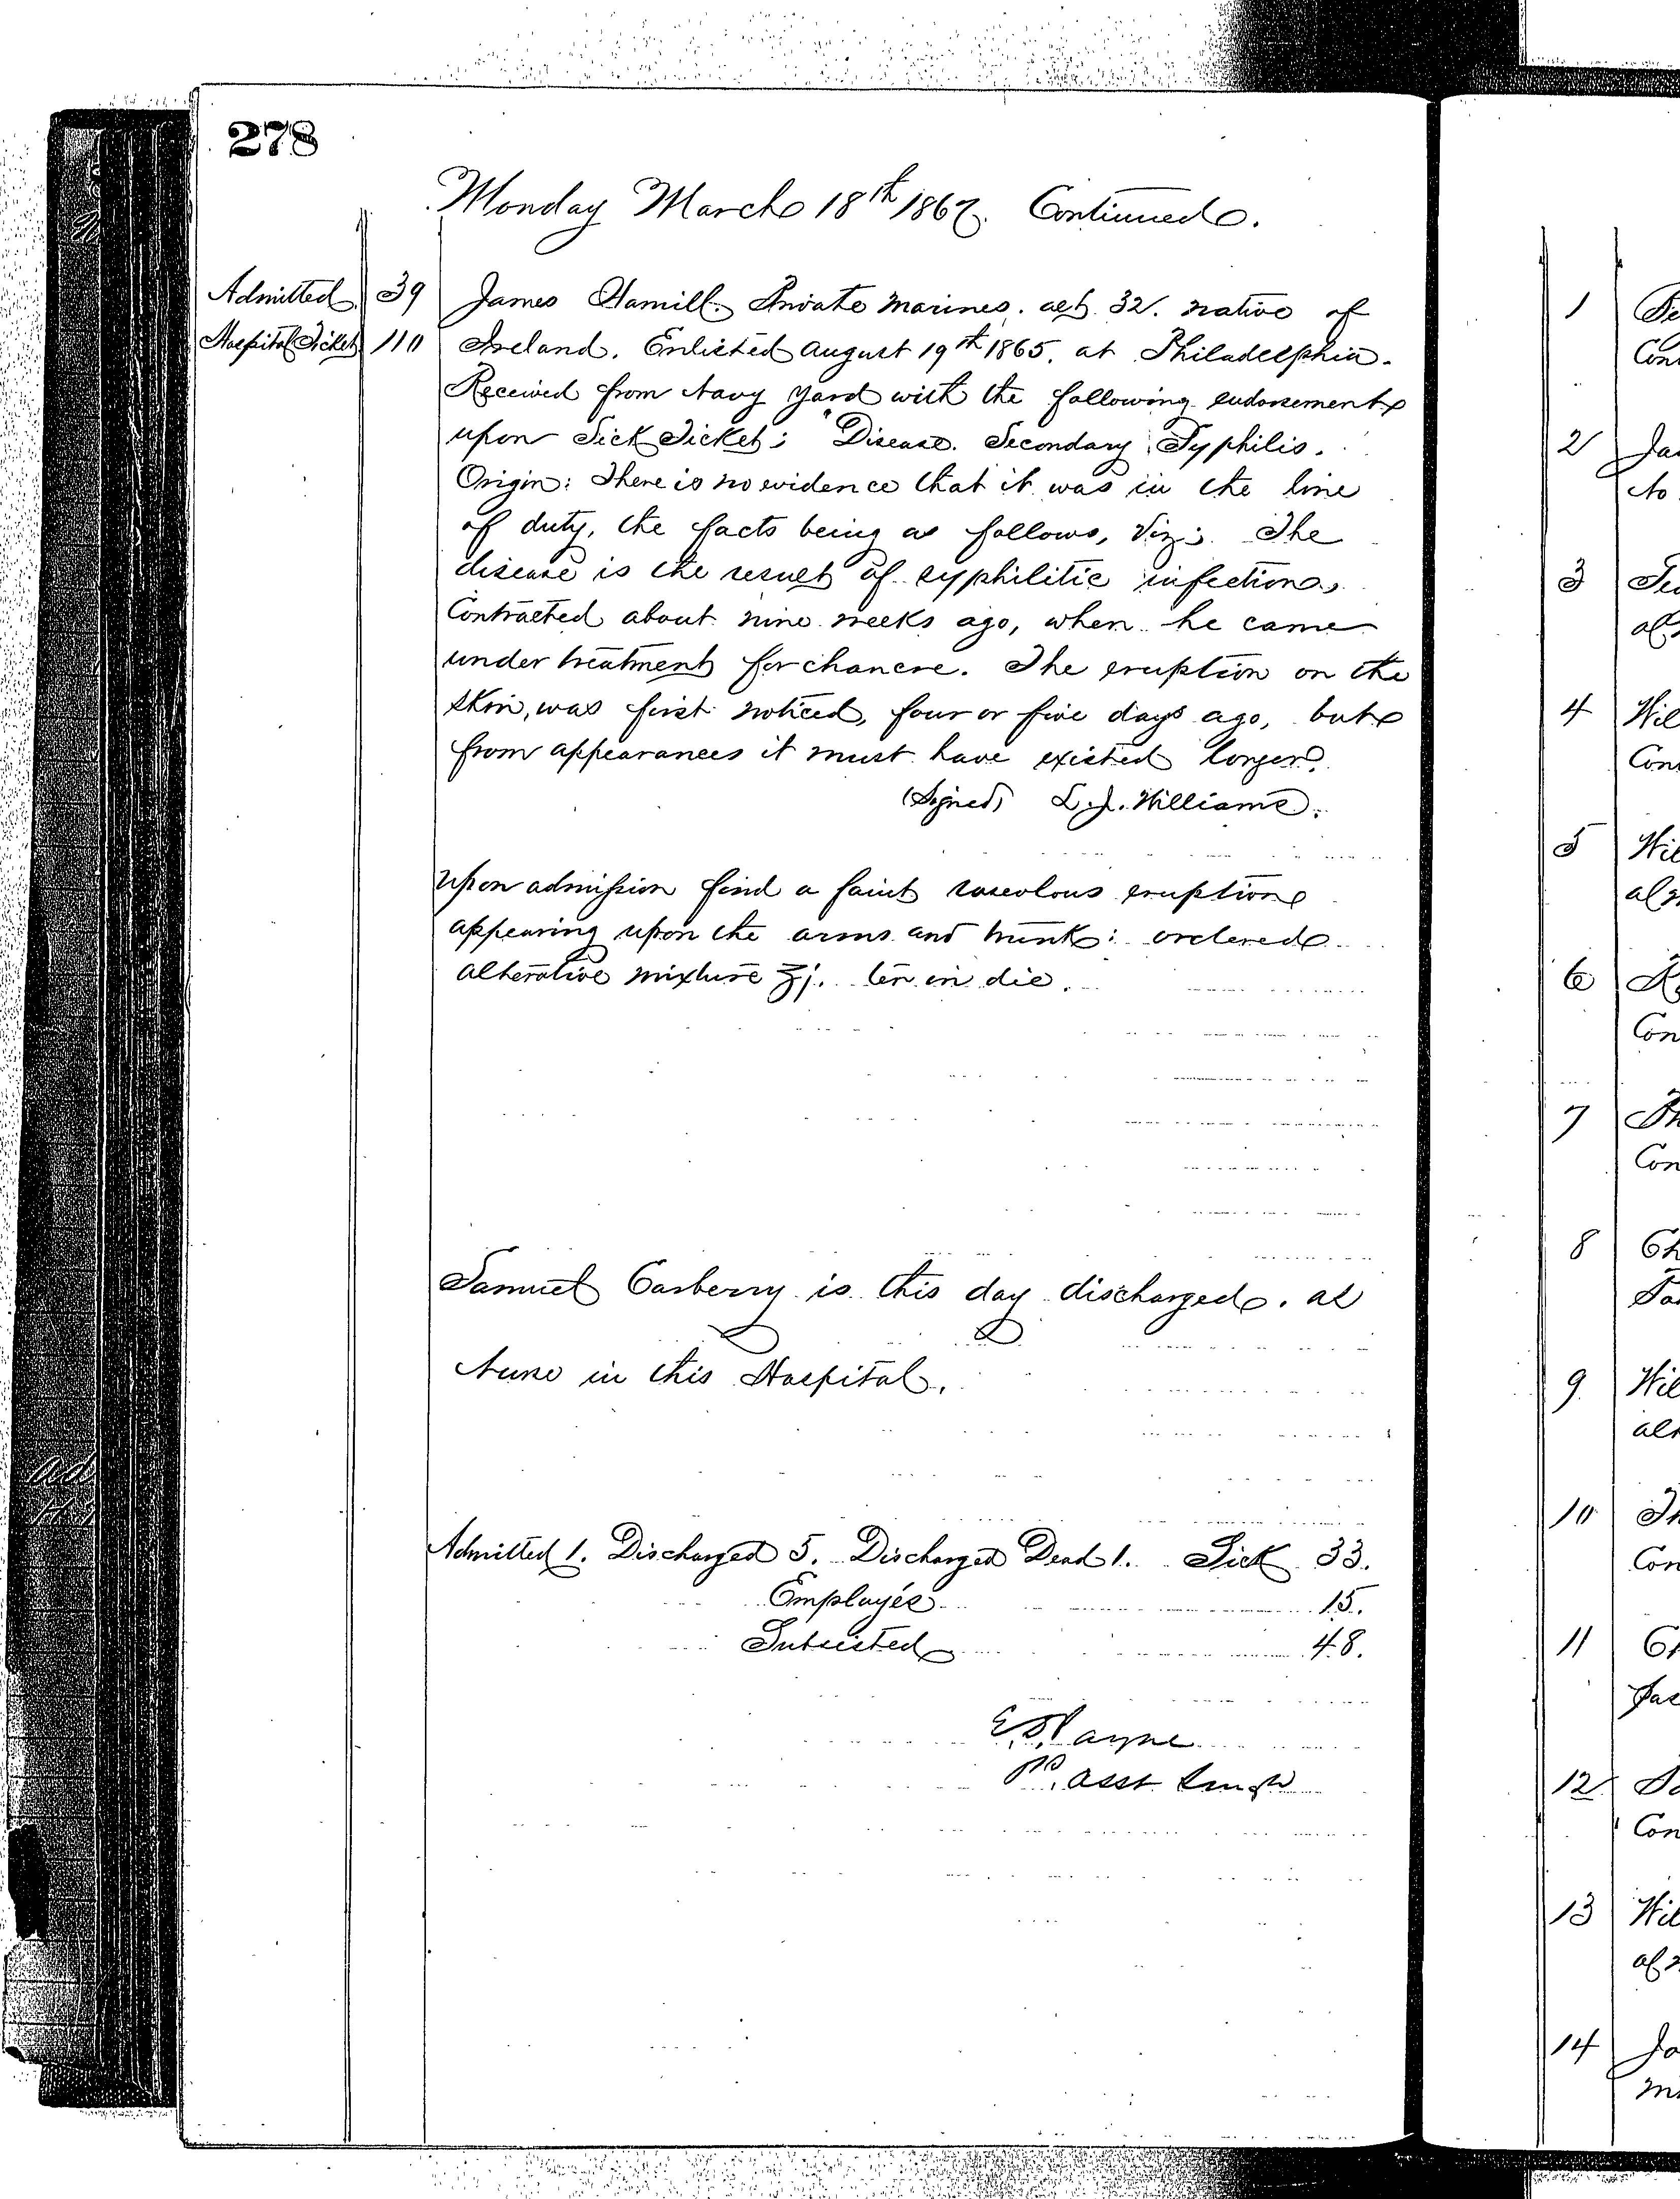 278
Monday March 18th 1867. Continued.
Admitted 39 James Hamill. Private Marines. aet. 32. native of
Hospital Ticket 110 Ireland. Enlisted August 19th 1865. at Philadelphia.
Received from Navy Yard with the following endorsement
upon Sick Ticket: "Disease. Secondary Syphilis.
Origin: There is no evidence that it was in the line
of duty, the facts being as follows, Viz: The
disease is the result of syphilitic infection,
Contracted about nine weeks ago, when he came
under treatment for chancre. The eruption on the
skin, was first noticed, four or five days ago, but
from appearances it must have existed longer.
(Signed) L. J. Williams.
Upon admission find a faint roseolous eruption
appearing upon the arms and trunk: ordered
alterative mixture ʒj. ter in die.
Samuel Carberry is this day discharged. as
Nurse in this Hospital.
Admitted 1. Discharged 5. Discharged Dead 1. Sick 33.
Employés 15.
Subsisted 48.
Payne
P. Asst Surg
1
Con
2 Ja
to
3
4 Wil
Con
5 Wil
6
Con
7 Th
Con
8 Ch
9 Wil
10 Th
Con
11 Ch
12
Con
13 Wil
14 Jo